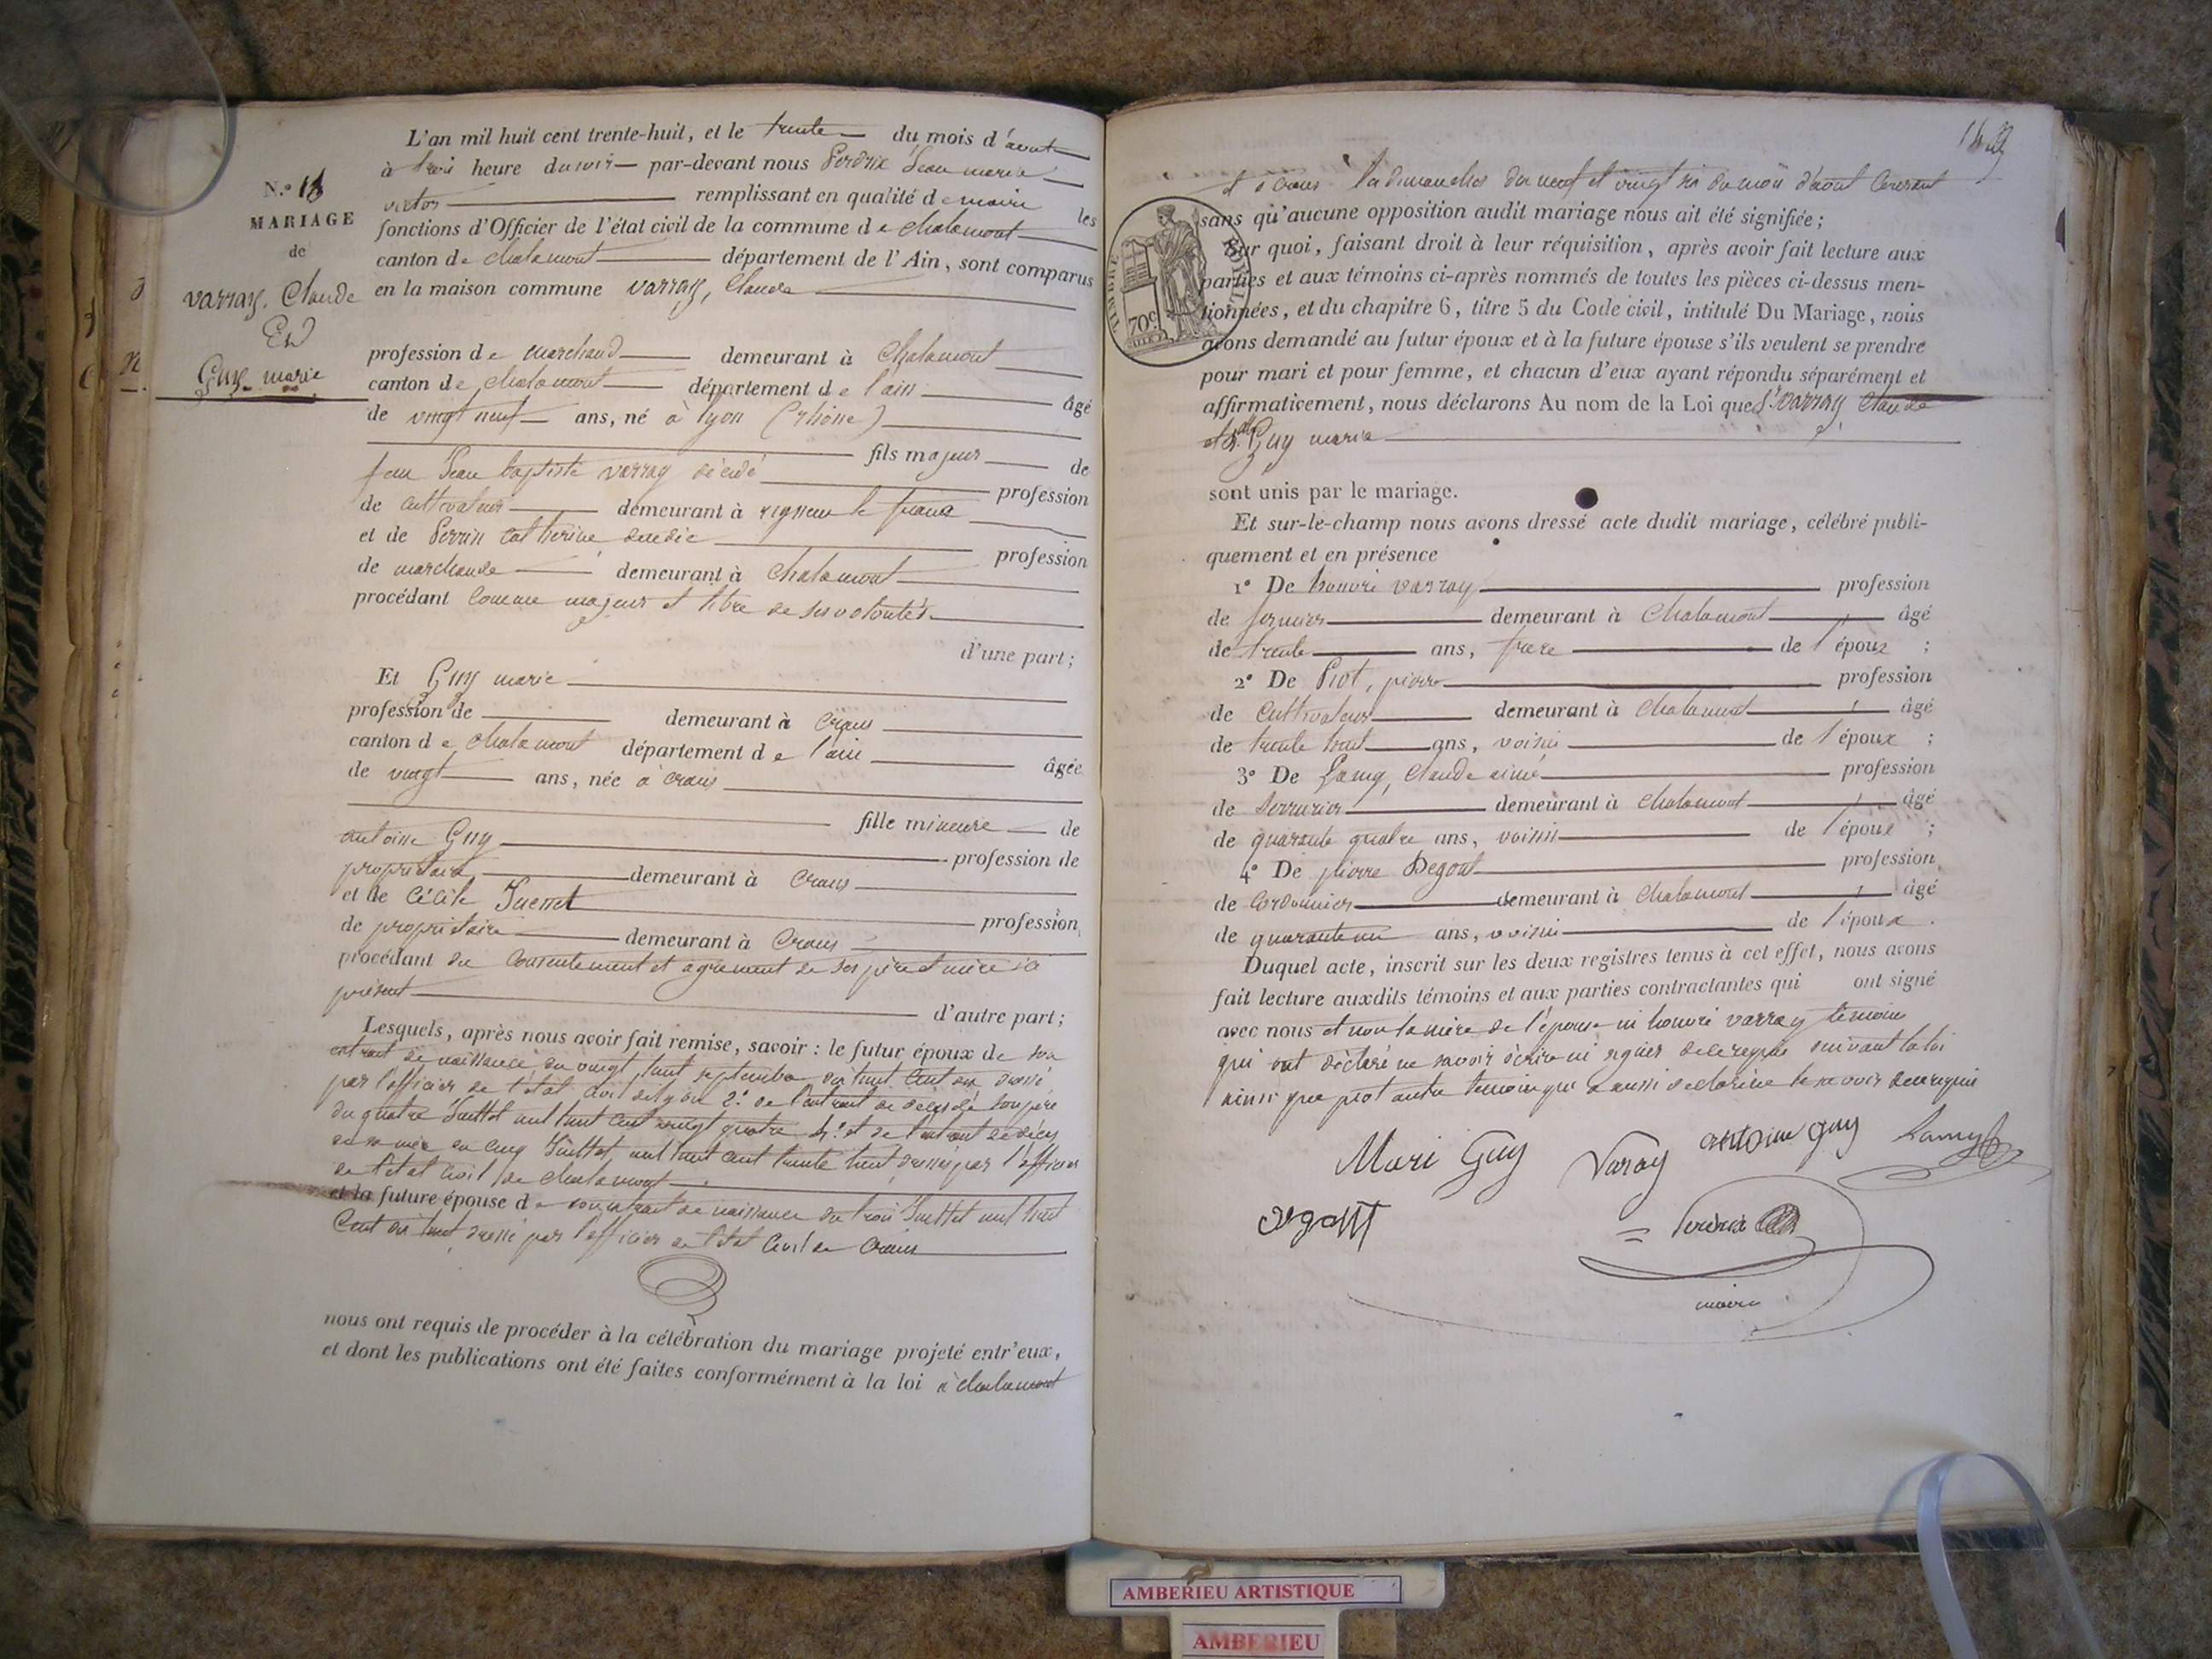 N.º 18
MARIAGE
de
varray, Claude
Et
Guy marie
L'an mil huit cent trente-huit, et le trente du mois d'aout
à trois heure du soir par-devant nous Perdrix Jean marie
victor remplissant en qualité de maire les
fonctions d'Officier de l'état civil de la commune de chalamont
canton de chalamont département de l'Ain, sont comparus
en la maison commune varray, Claude
profession de marchand demeurant à Chalamont
canton de chalamont département de l'ain âgé
de vingt neuf ans, né à lyon (rhône)
fils majeur de
feu Jean baptiste varray décédé profession
de cultivateur demeurant à rigneu le franc
et de Perrin Catherine profession
de marchande demeurant à Chalamont
procédant comme majeur et libre de ses volontés
d'une part;
Et Guy marie
profession de demeurant à Crans
canton de chalamont département de l'ain âgée
de vingt ans, née à crans
fille mineure de
antoine Guy profession de
propriétaire demeurant à Crans
et de Cécile profession
de propriétaire demeurant à Crans
procédant du consentement et agrément de ses père et mère ici
présent d'autre part;
Lesquels, après nous avoir fait remise, savoir : le futur époux de son
extrait de naissance du vingt huit septembre dix huit cent dressé
par l'officier de l'état civil de lyon 2.º de l'extrait de décès de son père
du quatre Juillet mil huit cent vingt quatre et de l'extrait de décès
de sa mère du cinq Juillet mil huit cent trente huit dressé par l'officier
de l'état civil de chalamont
et la future épouse de son extrait de naissance du trois Juillet mil huit
cent dix huit dressé par l'officier de l'état civil de Crans
nous ont requis de procéder à la célébration du mariage projeté entr'eux,
et dont les publications ont été faites conformément à la loi à chalamont
et à crans les dimanches dix neuf et vingt six du mois d'aout courant
TIMBRE ROYAL
70c
sans qu'aucune opposition audit mariage nous ait été signifiée;
Sur quoi, faisant droit à leur réquisition, après avoir fait lecture aux
parties et aux témoins ci-après nommés de toutes les pièces ci-dessus men-
tionnées, et du chapitre 6, titre 5 du Code civil, intitulé Du Mariage, nous
avons demandé au futur époux et à la future épouse s'ils veulent se prendre
pour mari et pour femme, et chacun d'eux ayant répondu séparément et
affirmativement, nous déclarons Au nom de la Loi que Sr. varray Claude
et Guy marie
sont unis par le mariage.
Et sur-le-champ nous avons dressé acte dudit mariage, célébré publi-
quement et en présence
1º De honoré varray profession
de fermier demeurant à Chalamont âgé
de trente ans, frere de l'époux ;
2º De Piot, pierre profession
de Cultivateur demeurant à Chalamont âgé
de trente huit ans, voisin de l'époux ;
3º De Lamy, Claude aimé profession
de Serrurier demeurant à Chalamont âgé
de quarante quatre ans, voisin de l'époux ;
4º De pierre Degout profession
de Cordonnier demeurant à Chalamont âgé
de quarante un ans, voisin de l'époux .
Duquel acte, inscrit sur les deux registres tenus à cet effet, nous avons
fait lecture auxdits témoins et aux parties contractantes qui ont signé
avec nous et non la mère de l'épouse ni honoré varray témoin
qui ont déclaré ne savoir écrire ni signer de ce requis suivant la loi
ainsi que piot autre temoin qui a aussi déclaré ne le savoir de ce requis
Mari Guy Varay antoine guy Lamy
degoutt
Perdrix
maire
AMBERIEU ARTISTIQUE
AMBERIEU